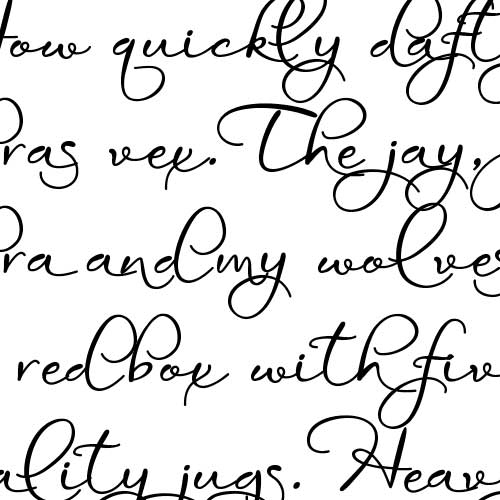 ow quickly daft
ras vex. The jay,
ra and my wolves
red box with fiv
ality jugs. Heav